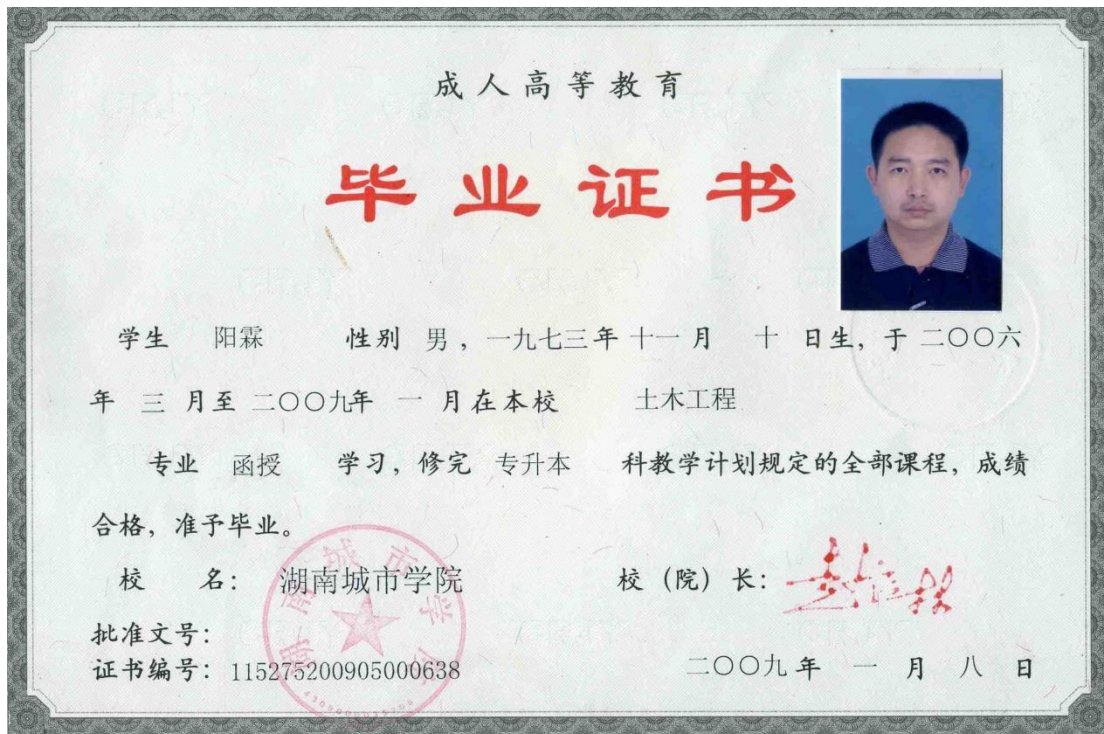 成人高等教育
毕业证书
学生 阳霖 性别 男，一九七三年十一月 十 日生，于二〇〇六
年 三 月至二〇〇九年 一 月在本校 土木工程
专业 函授 学习，修完 专升本 科教学计划规定的全部课程，成绩
合格，准予毕业。
校 名：湖南城市学院 校（院）长：
批准文号：
证书编号：115275200905000638 二〇〇九年 一 月 八 日
湖南城市学院